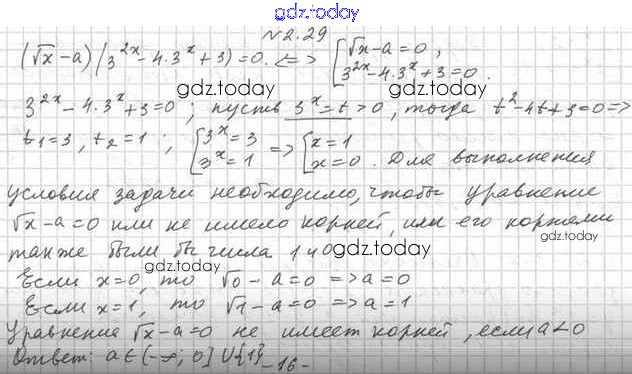 gdz.today
№2.29
(√x-a)(3^2x-4·3^x+3)=0. <=> [√x-a=0,
3^2x-4·3^x+3=0.
gdz.today gdz.today
3^2x-4·3^x+3=0; пусть 3^x=t>0, тогда t²-4t+3=0=>
t1=3, t2=1; [3^x=3 3^x=1 => [x=1 x=0. Для выполнения
gdz.today gdz.today
условия задачи необходимо, чтобы уравнение
√x-a=0 или не имело корней, или его корнями
gdz.today
также были бы числа 1 и 0 gdz.today
gdz.today
Если x=0, то √0-a=0=>a=0
Если x=1, то √1-a=0=>a=1
gdz.today
Уравнение √x-a=0 не имеет корней, если a<0
Ответ: a∈(-∞; 0]∪{1}
-16-
gdz.today